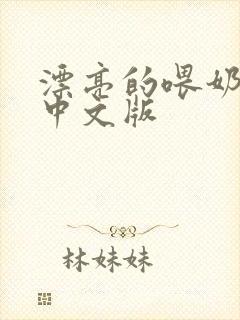 漂亮的喂奶
中文版
林妹妹